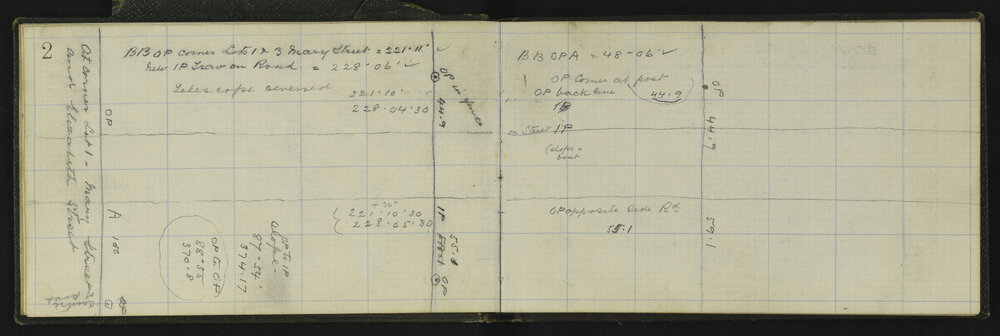 2
At corner Lot 1 - Mary Street
and Elizabeth Street
OP
A
100
BB OP corner Lots 1 & 3 Mary Street = 221·11'
New IP Trav on Road = 228·06'
Telescope reversed 221·10'
228·04'30
OP in fence
44.9
+30"
221·10'30
228·05'30
IP
55.1
Street
OP
OP to IP
slope =
87-54'
374.17
OP to OP
88-55
370.8
BB OP A = 48-06'
OP Corner at post
OP back line 44.9
IP
on Street IP
OP opposite side Rd
55.1
OP
44.9
59.1